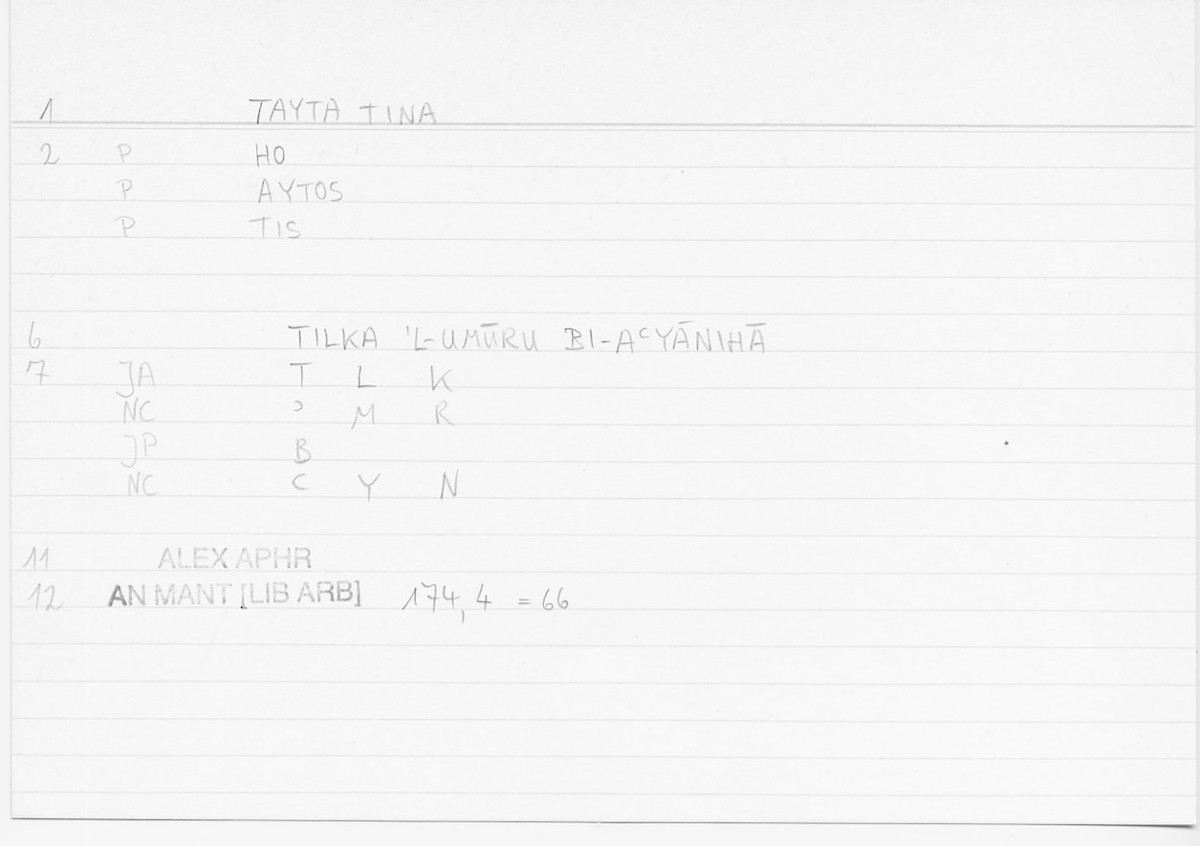 1 TAYTA TINA
2 P HO
P AYTOS
P TIS
6 TILKA 'L-UMŪRU BI-AʿYĀNIHĀ
7 JA T L K
NC ʾ M R
JP B
NC ʿ Y N
11 ALEX APHR
12 AN MANT [LIB ARB] 174,4 = 66